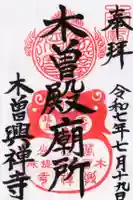 奉拝
令和七年七月十九日
木曽殿廟所
木曽興禅寺